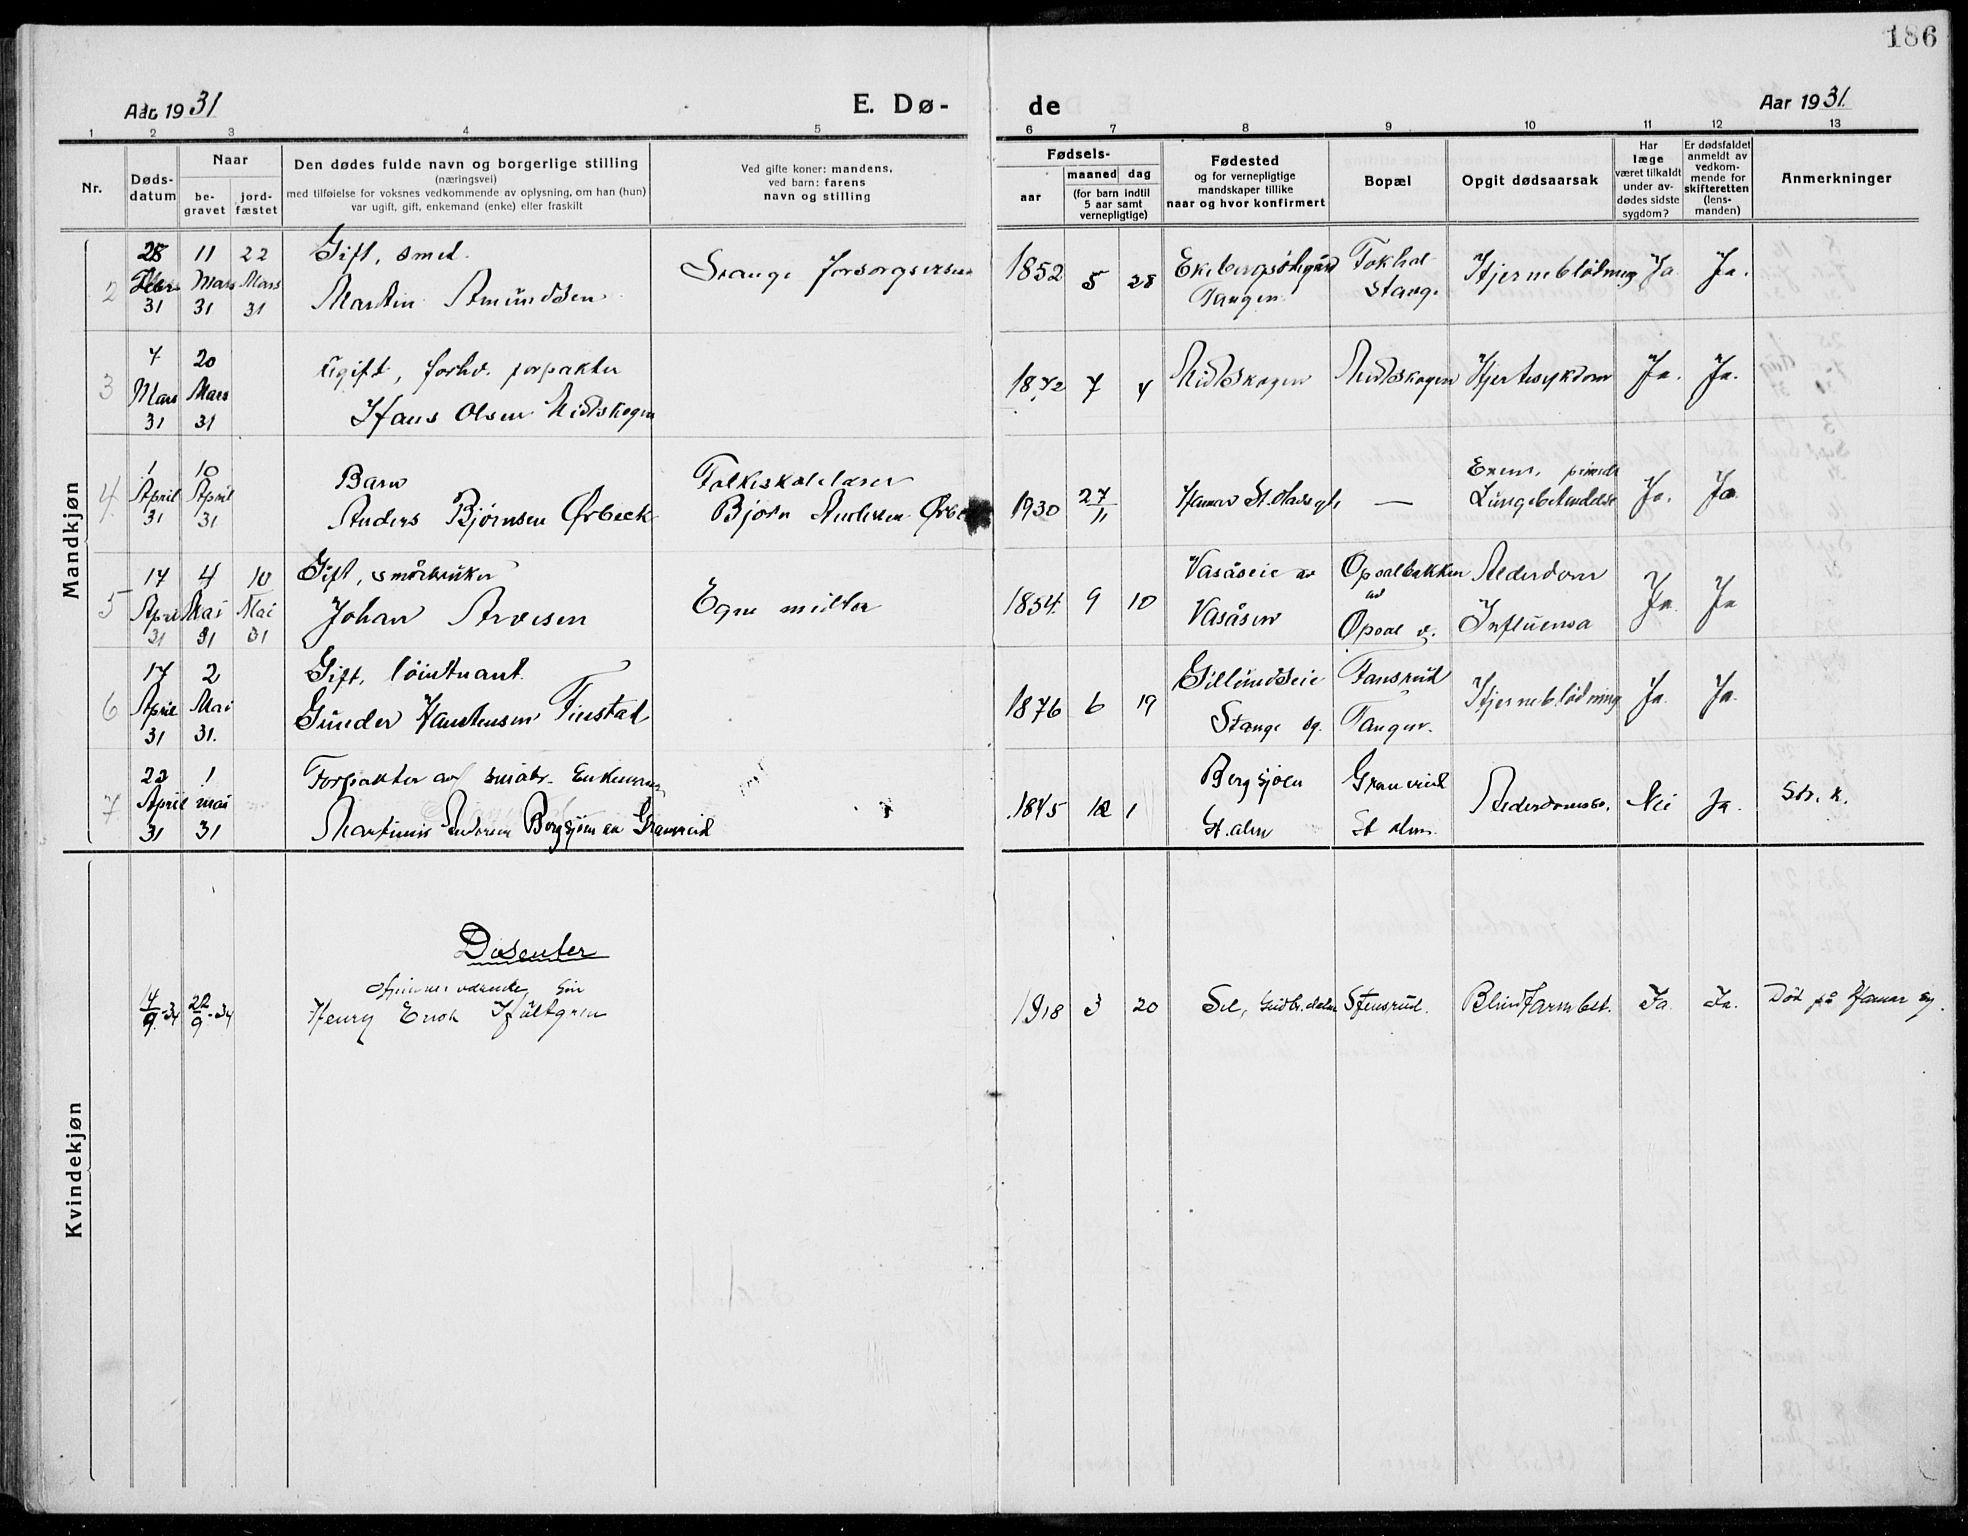 186
Aar 1931
E. Dø-
de
Aar 1931.
1 2 3 4 5 6 7 8 9 10 11 12 13
Nr.
Døds-
datum
Naar
be-
gravet
jord-
fæstet
Den dødes fulde navn og borgerlige stilling
(næringsvei)
med tilføielse for voksnes vedkommende av oplysning, om han (hun)
var ugift, gift, enkemand (enke) eller fraskilt
Ved gifte koner: mandens,
ved barn: farens
navn og stilling
Fødsels-
aar
maaned dag
(for barn indtil
5 aar samt
vernepligtige)
Fødested
og for vernepligtige
mandskaper tillike
naar og hvor konfirmert
Bopæl
Opgit dødsaarsak
Har
læge
været tilkaldt
under av-
dødes sidste
sygdom?
Er dødsfaldet
anmeldt av
vedkom-
mende for
skifteretten
(lens-
manden)
Anmerkninger
Mandkjøn
2
28 11 22
Mars Mars
31 31 31
Gift, smed.
Martin Amundsen
Stange
1852 5 28
Tangen
Stange
Hjerneblødning
Ja Ja.
3
7 20
Mars Mars
31 31
Ugift, forh. forpakter
Hans Olsen Midtskogen
1872 7 4
Midtskogen
Midtskogen
Hjertesykdom
Ja. Ja.
4
1 10
April April
31 31
Barn
Anders Bjørnsen Ørbeck
Folkeskolelærer
Bjørn Andersen
1930 27/11
Hamar
—
Lungebetendelse
Ja. Ja.
5
17 4 10
April Mai Mai
31 31 31
Gift, småbruker
Johan Arvesen
Egne midler
1854. 9 10
Vasåseie av
Vasåsen
Opsalbakken
av
Opsal
Alderdom
Influensa
Ja. Ja
6
17 2
April Mai
31 31.
Gift, løitnant.
Gunder Finstad
1876 6 19
Gillundseie
Stange sg.
Fansrud
Tangen.
Hjerneblødning
Ja. Ja.
7
22 1
April mai
31 31
Forpakter av småbr. Enkemann
Martinus Andersen Bergsjøen av Granerud
1845 12 1
Bergsjøen
St. alm
Granerud
St alm.
Nei Ja.
Kvindekjøn
Disenter
4/9-34 22/9-34
Hjemmeværende søn
Henry Enok Hultgren
1918 3 20
Sel, Gudbr.dalen
Stensrud.
Blindtarmbet.
Ja Ja.
Død på Hamar sy.